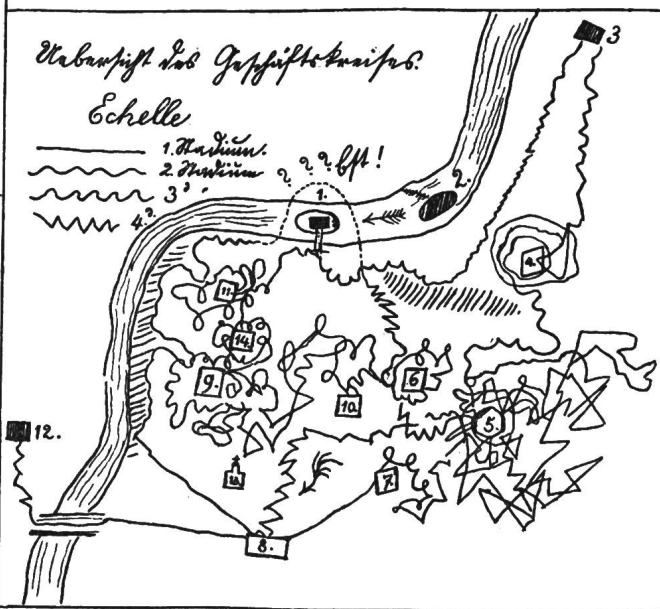 Uebersicht des Geschäftskreises.
Echelle
1. Stadium.
2. Stadium
3 "
4 "
? ? ? Est!
1.
2.
3
4.
11.
14.
9.
10.
6
5.
12.
13.
7.
8.